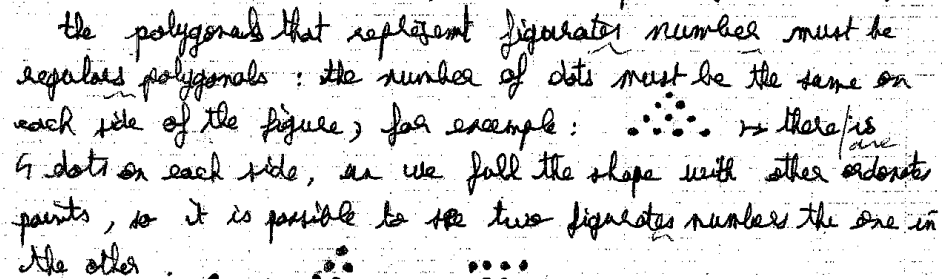 the polygonals that represent figurates number must be
regulars polygonals : the number of dots must be the same on
each side of the figure, for example : there is
are
4 dots on each side, we full the shape with other ordonates
points, so it is possible to see two figurates numbers the one in
the other.